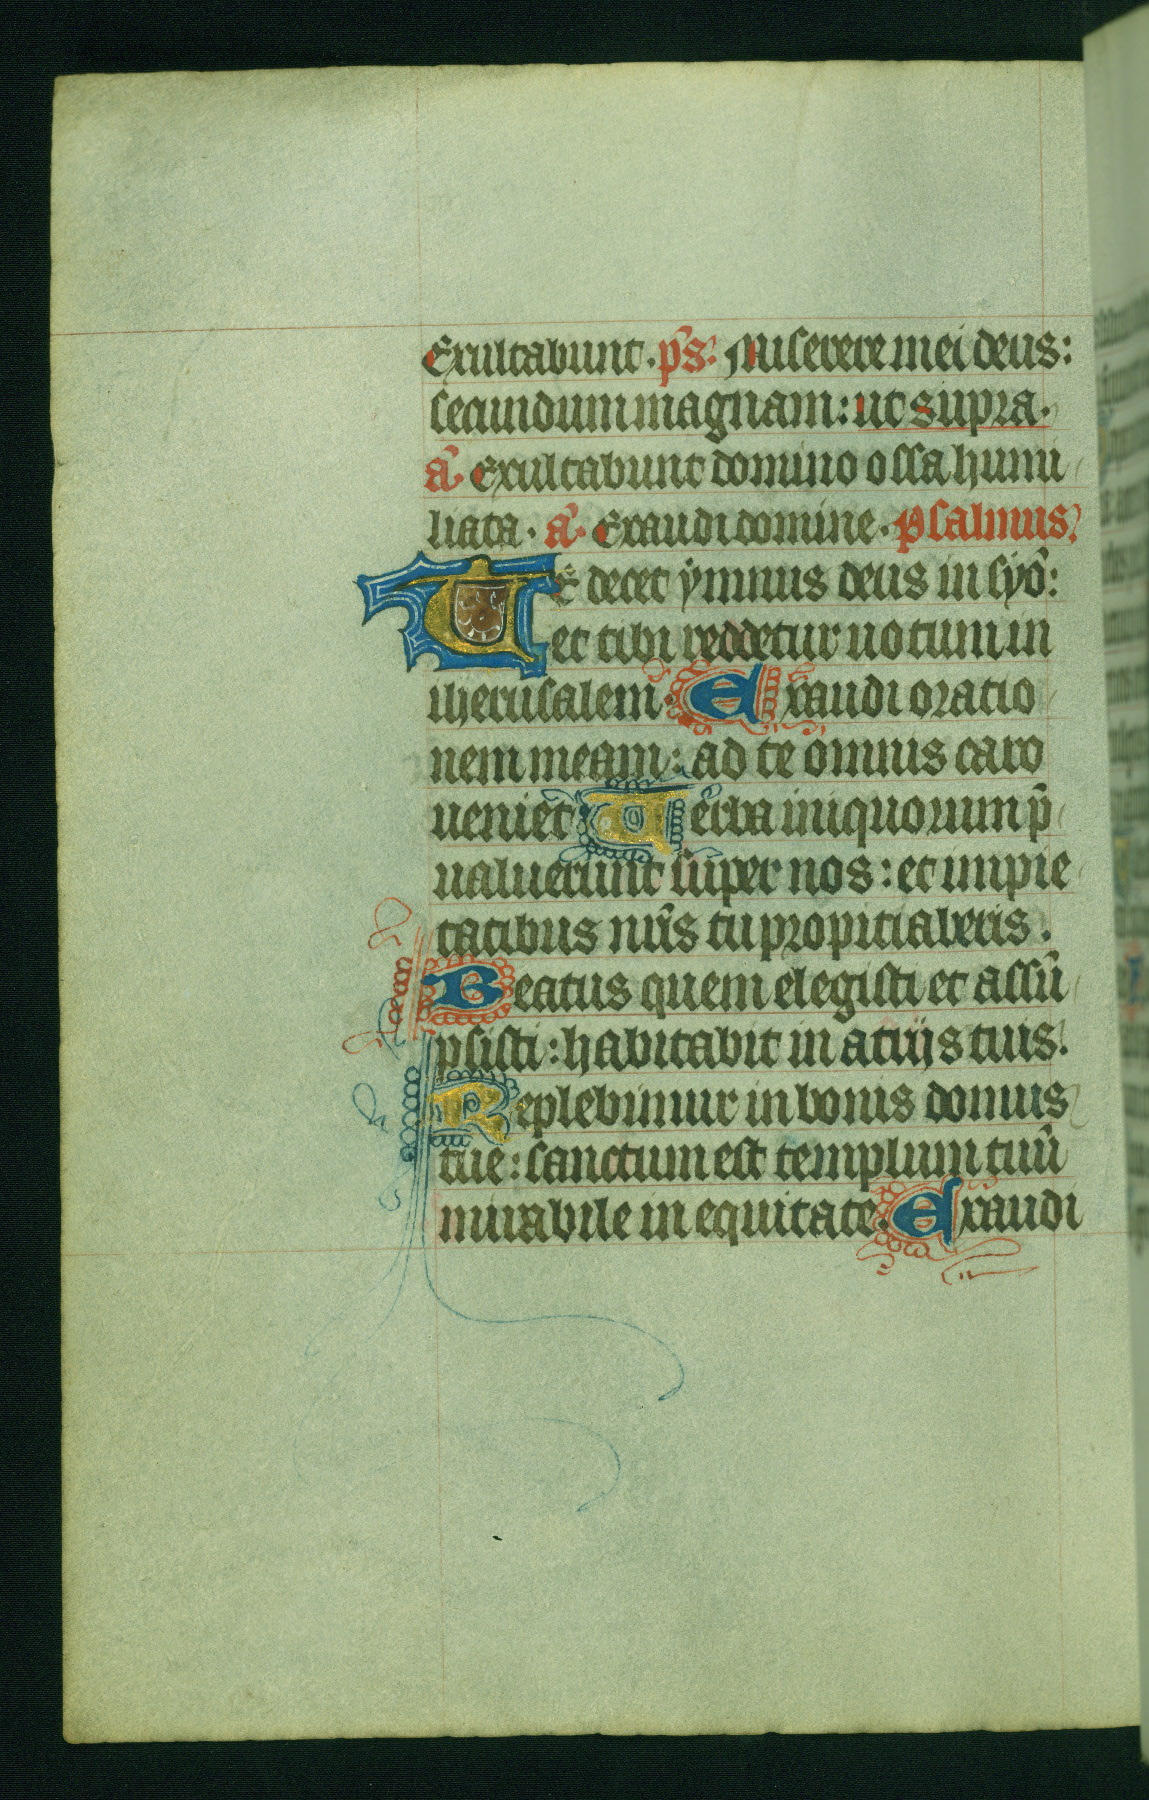 Exultabunt. ps̃. Miserere mei deus:
secundum magnam: ut supra.
a᷑. Exultabunt domino ossa humi
liata. a᷑. Exaudi domine. psalmus.
TE decet ymnus deus in syõ:
et tibi reddetur uotum in
iherusalem. Exaudi oratio
nem meam: ad te omnis caro
ueniet Uerba iniquorum p̃
ualuerunt super nos: et impie
tatibus nr̃is tu propiciaberis.
Beatus quem elegisti et assũ
psisti: habitabit in atriis tuis.
Replebimur in bonis domus
tue: sanctum est templum tuũ
mirabile in equitate. Exaudi